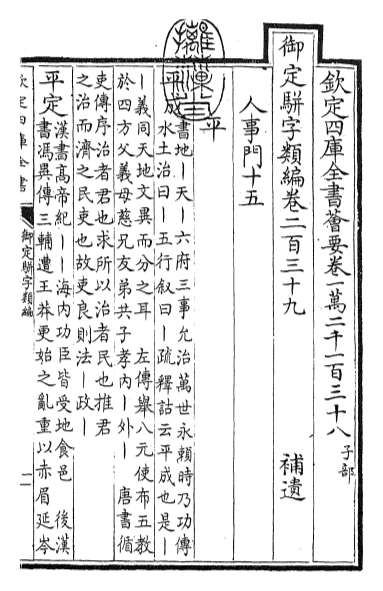 欽定四庫全書薈要卷一萬二千一百三十八 子部
御定駢字類編卷二百三十九 補遺
人事門十五
平
平成 書地丨天丨六府三事允治萬世永賴時乃功傳
水土治曰丨五行敘曰丨疏釋詁云平成也是丨
丨義同天地文異而分之耳 左傳舉八元使布五教
於四方父義母慈兄友弟共子孝內丨外丨 唐書循
吏傳序治者君也求所以治者民也推君
之治而濟之民吏也故吏良則法丨政丨
平定 漢書高帝紀丨丨海內功臣皆受地食邑 後漢
書馮異傳三輔遭王莽更始之亂重以赤眉延岑
欽定四庫全書
御定駢字類編